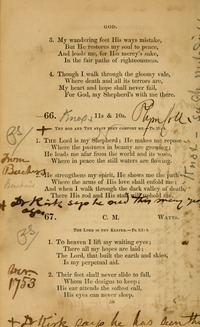 GOD.
3. My wandering feet his ways mistake,
But he restores my soul to peace,
And leads me, for his mercy's sake,
In the fair paths of righteousness.
4. Though I walk through the gloomy vale,
Where death and all its terrors are,
My heart and hope shall never fail,
For God, my Shepherd's with me there.
66. 11s & 10s.
THY ROD AND THY STAFF THEY COMFORT ME.
1. The Lord is my Shepherd; He makes me repose
Where the pastures in beauty are growing;
He leads me afar from the world and its woes,
Where in peace the still waters are flowing.
He strengthens my spirit, He shows me the path
Where the arms of His love shall enfold me;
And when I walk through the dark valley of death,
There His rod and His staff will uphold me.
Dr Kirk says he
67. C. M. WATTS.
THE LORD IS THY KEEPER.
1. To heaven I lift my waiting eyes;
There all my hopes are laid;
The Lord, that built the earth and skies,
Is my perpetual aid.
1753
2. Their feet shall never slide to fall,
Whom he designs to keep;
His ear attends the softest call,
His eyes can never sleep.
Dr Kirk says he has